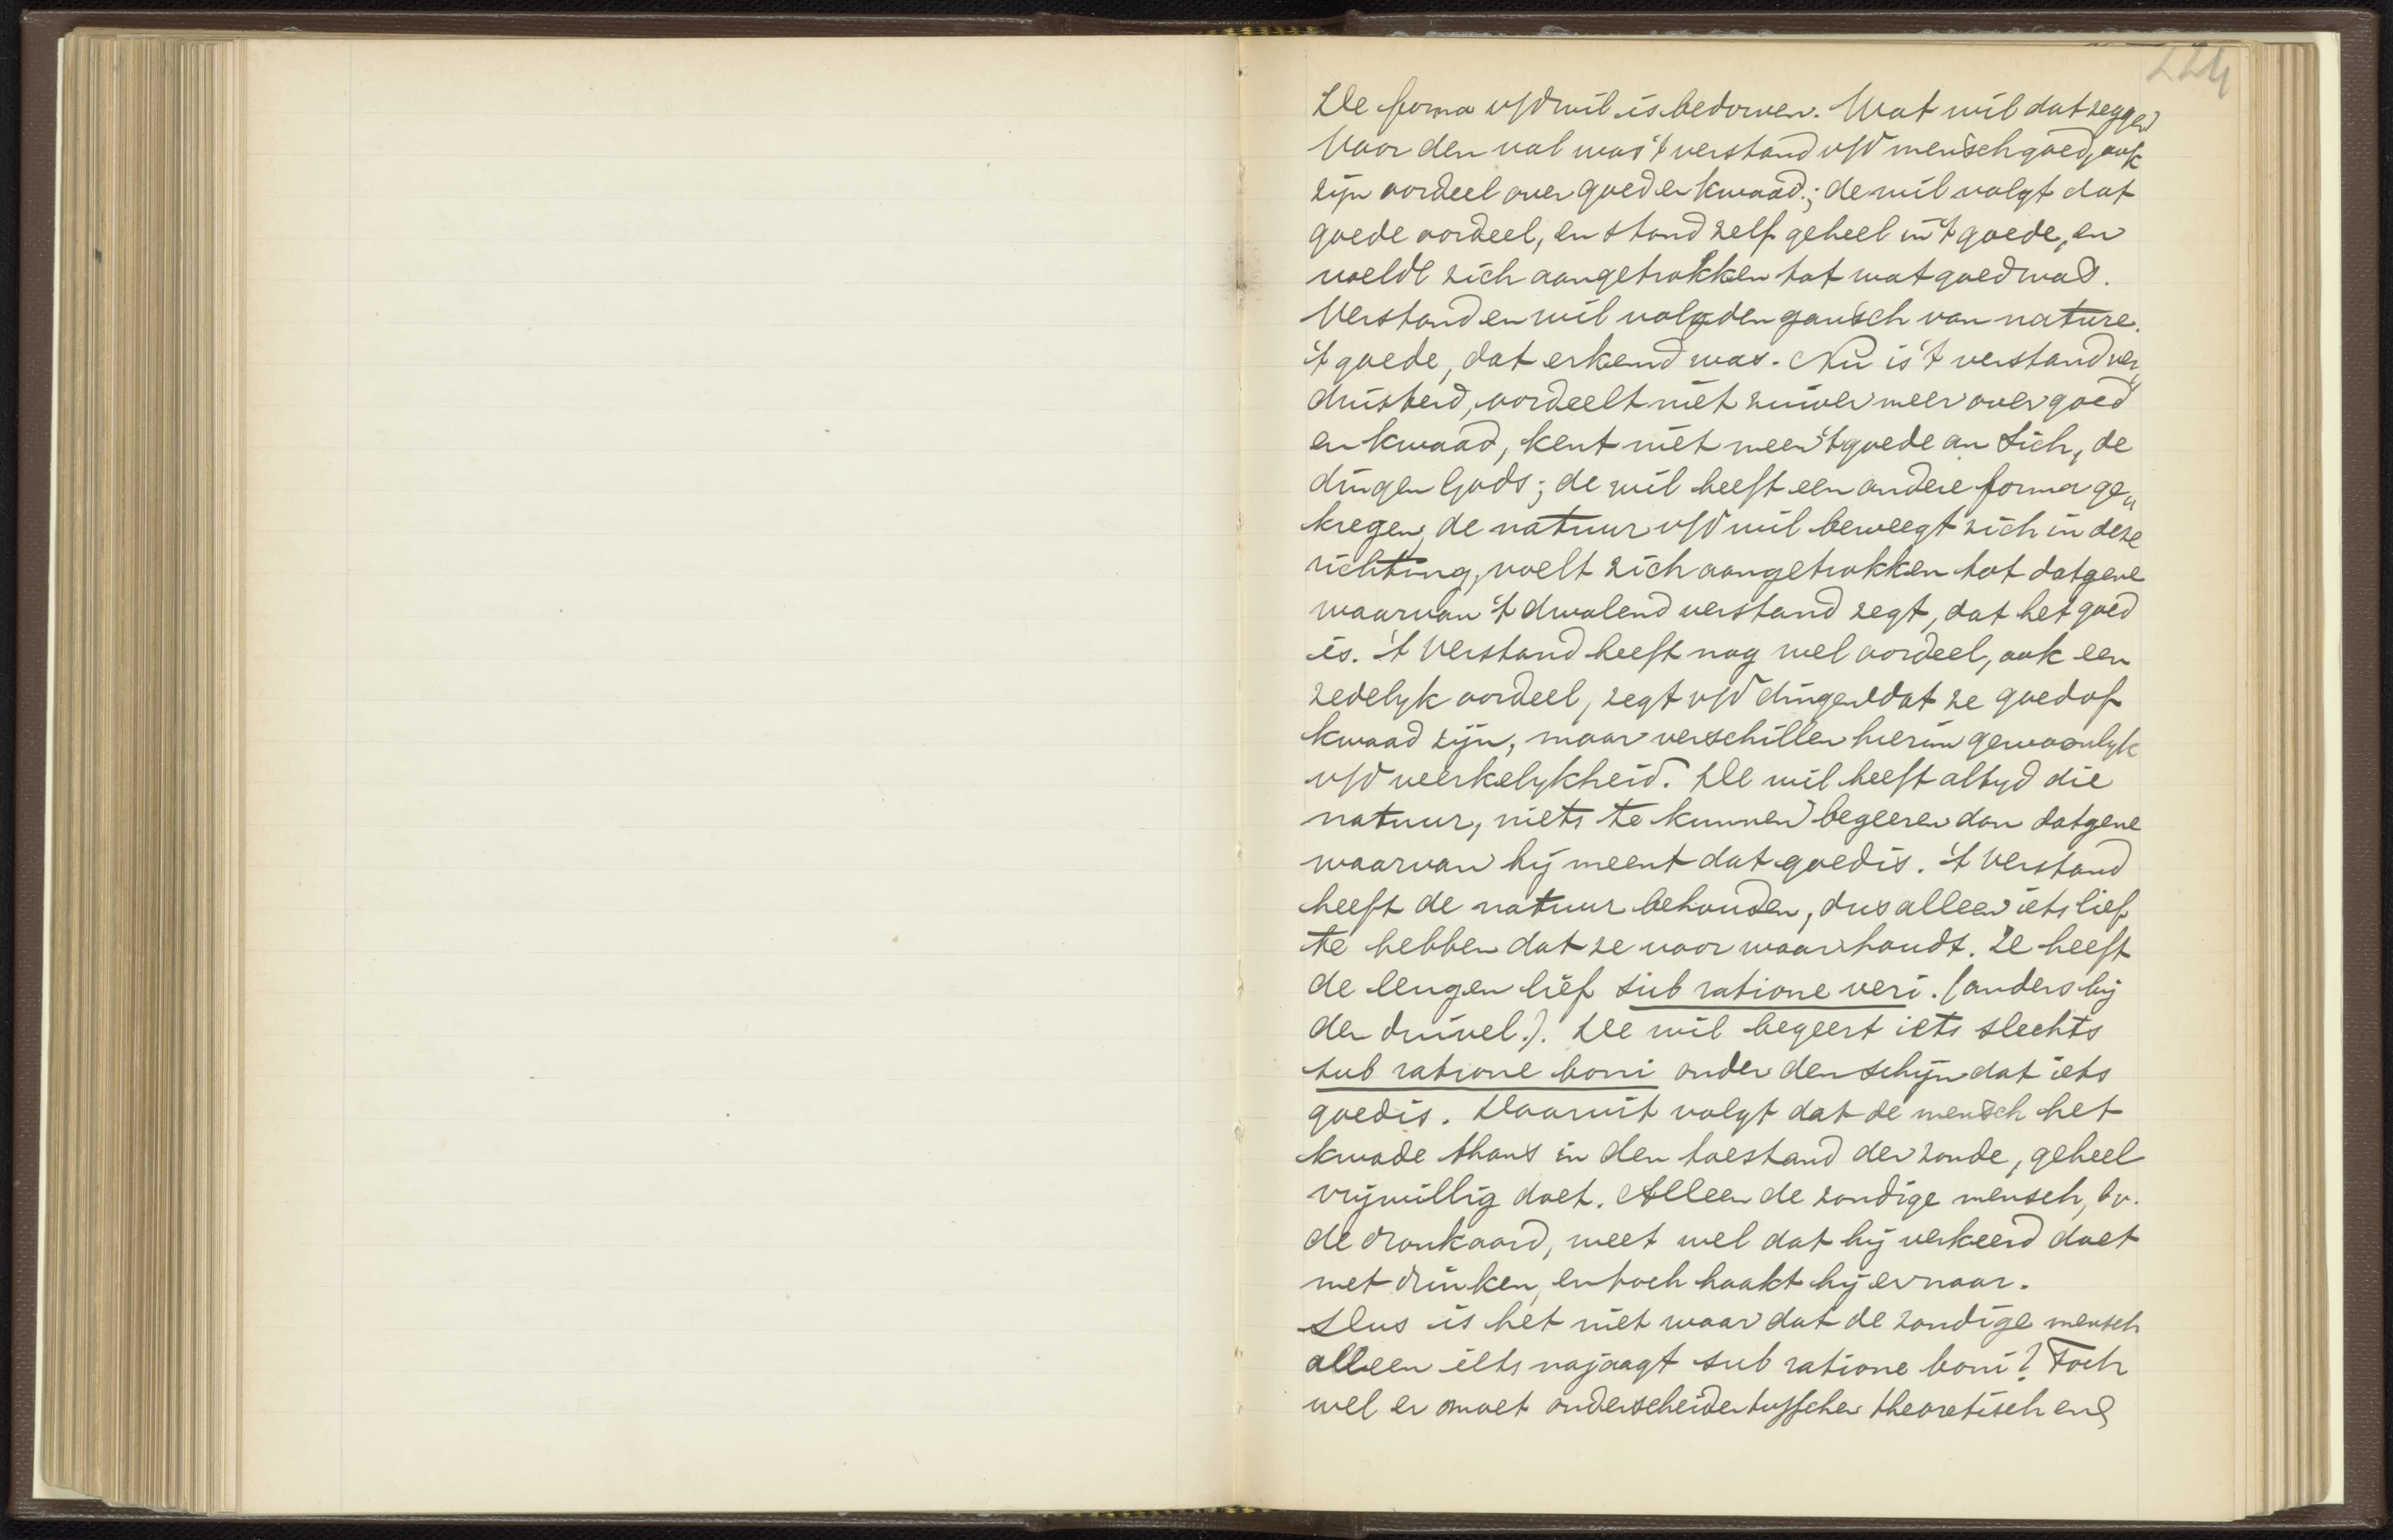 224
De forma v/d wil is bedorven. Wat wil dat zeggen
Voor den val was 't verstand v/d mensch goed, ook
zijn oordeel over goed en kwaad; de wil volgt dat
goede oordeel, en stond zelf geheel in 't goede, en
voelde zich aangetrokken tot wat goed was.
Verstand en wil volgden gansch van nature
't goede, dat erkend was. Nu is 't verstand ver„
duisterd, oordeelt niet zuiver meer over goed
en kwaad, kent niet meer 't goede an sich, de
dingen Gods; de wil heeft een andere forma ge„
kregen, de natuur v/d wil beweegt zich in deze
richting, voelt zich aangetrokken tot datgene
waarvan 't dwalend verstand zegt, dat het goed
is. 't Verstand heeft nog wel oordeel, ook een
zedelyk oordeel, zegt v/d dingen dat ze goed of
kwaad zijn, maar verschillen hierin gewoonlyk
v/d werkelykheid. De wil heeft altyd die
natuur, niets te kunnen begeeren dan datgene
waarvan hij meent dat goed is. 't Verstand
heeft de natuur behouden, dus alleen iets lief
te hebben dat ze voor waar houdt. Ze heeft
de leugen lief sub ratione veri. (anders bij
den duivel.). De wil begeert iets slechts
sub ratione boni onder den schijn dat iets
goed is. Daaruit volgt dat de mensch het
kwade thans in den toestand der zonde, geheel
vrijwillig doet. Alleen de zondige mensch, bv.
de dronkaard, weet wel dat hij verkeerd doet
met drinken, en toch haakt hij ernaar.
Dus is het niet waar dat de zondige mensch
alleen iets najaagt sub ratione boni? Toch
wel er moet onderscheiden tusschen theoretisch en